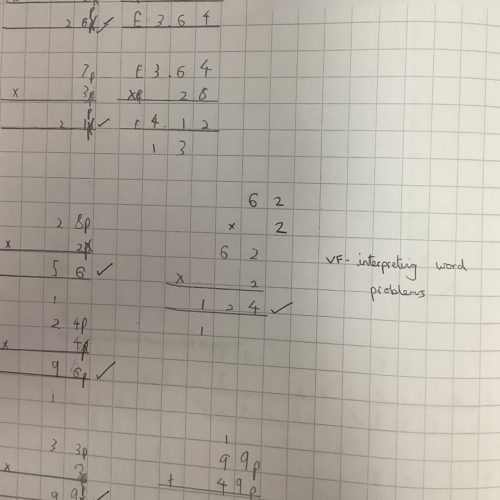 2 6p ✓ £ 3 . 6 4
7p
x 3p
2 1p ✓
£ 3 . 6 4
2 8
£ 4 . 1 2
1 3
6 2
x 2
6 2
x 2
1 2 4 ✓
1
VF - interpreting word
problems
2 8p
x 2p
5 6 ✓
1
2 4p
x 4p
9 6p ✓
1
3 3p
x
9 9 ✓
1
9 9p
+ 4 9p